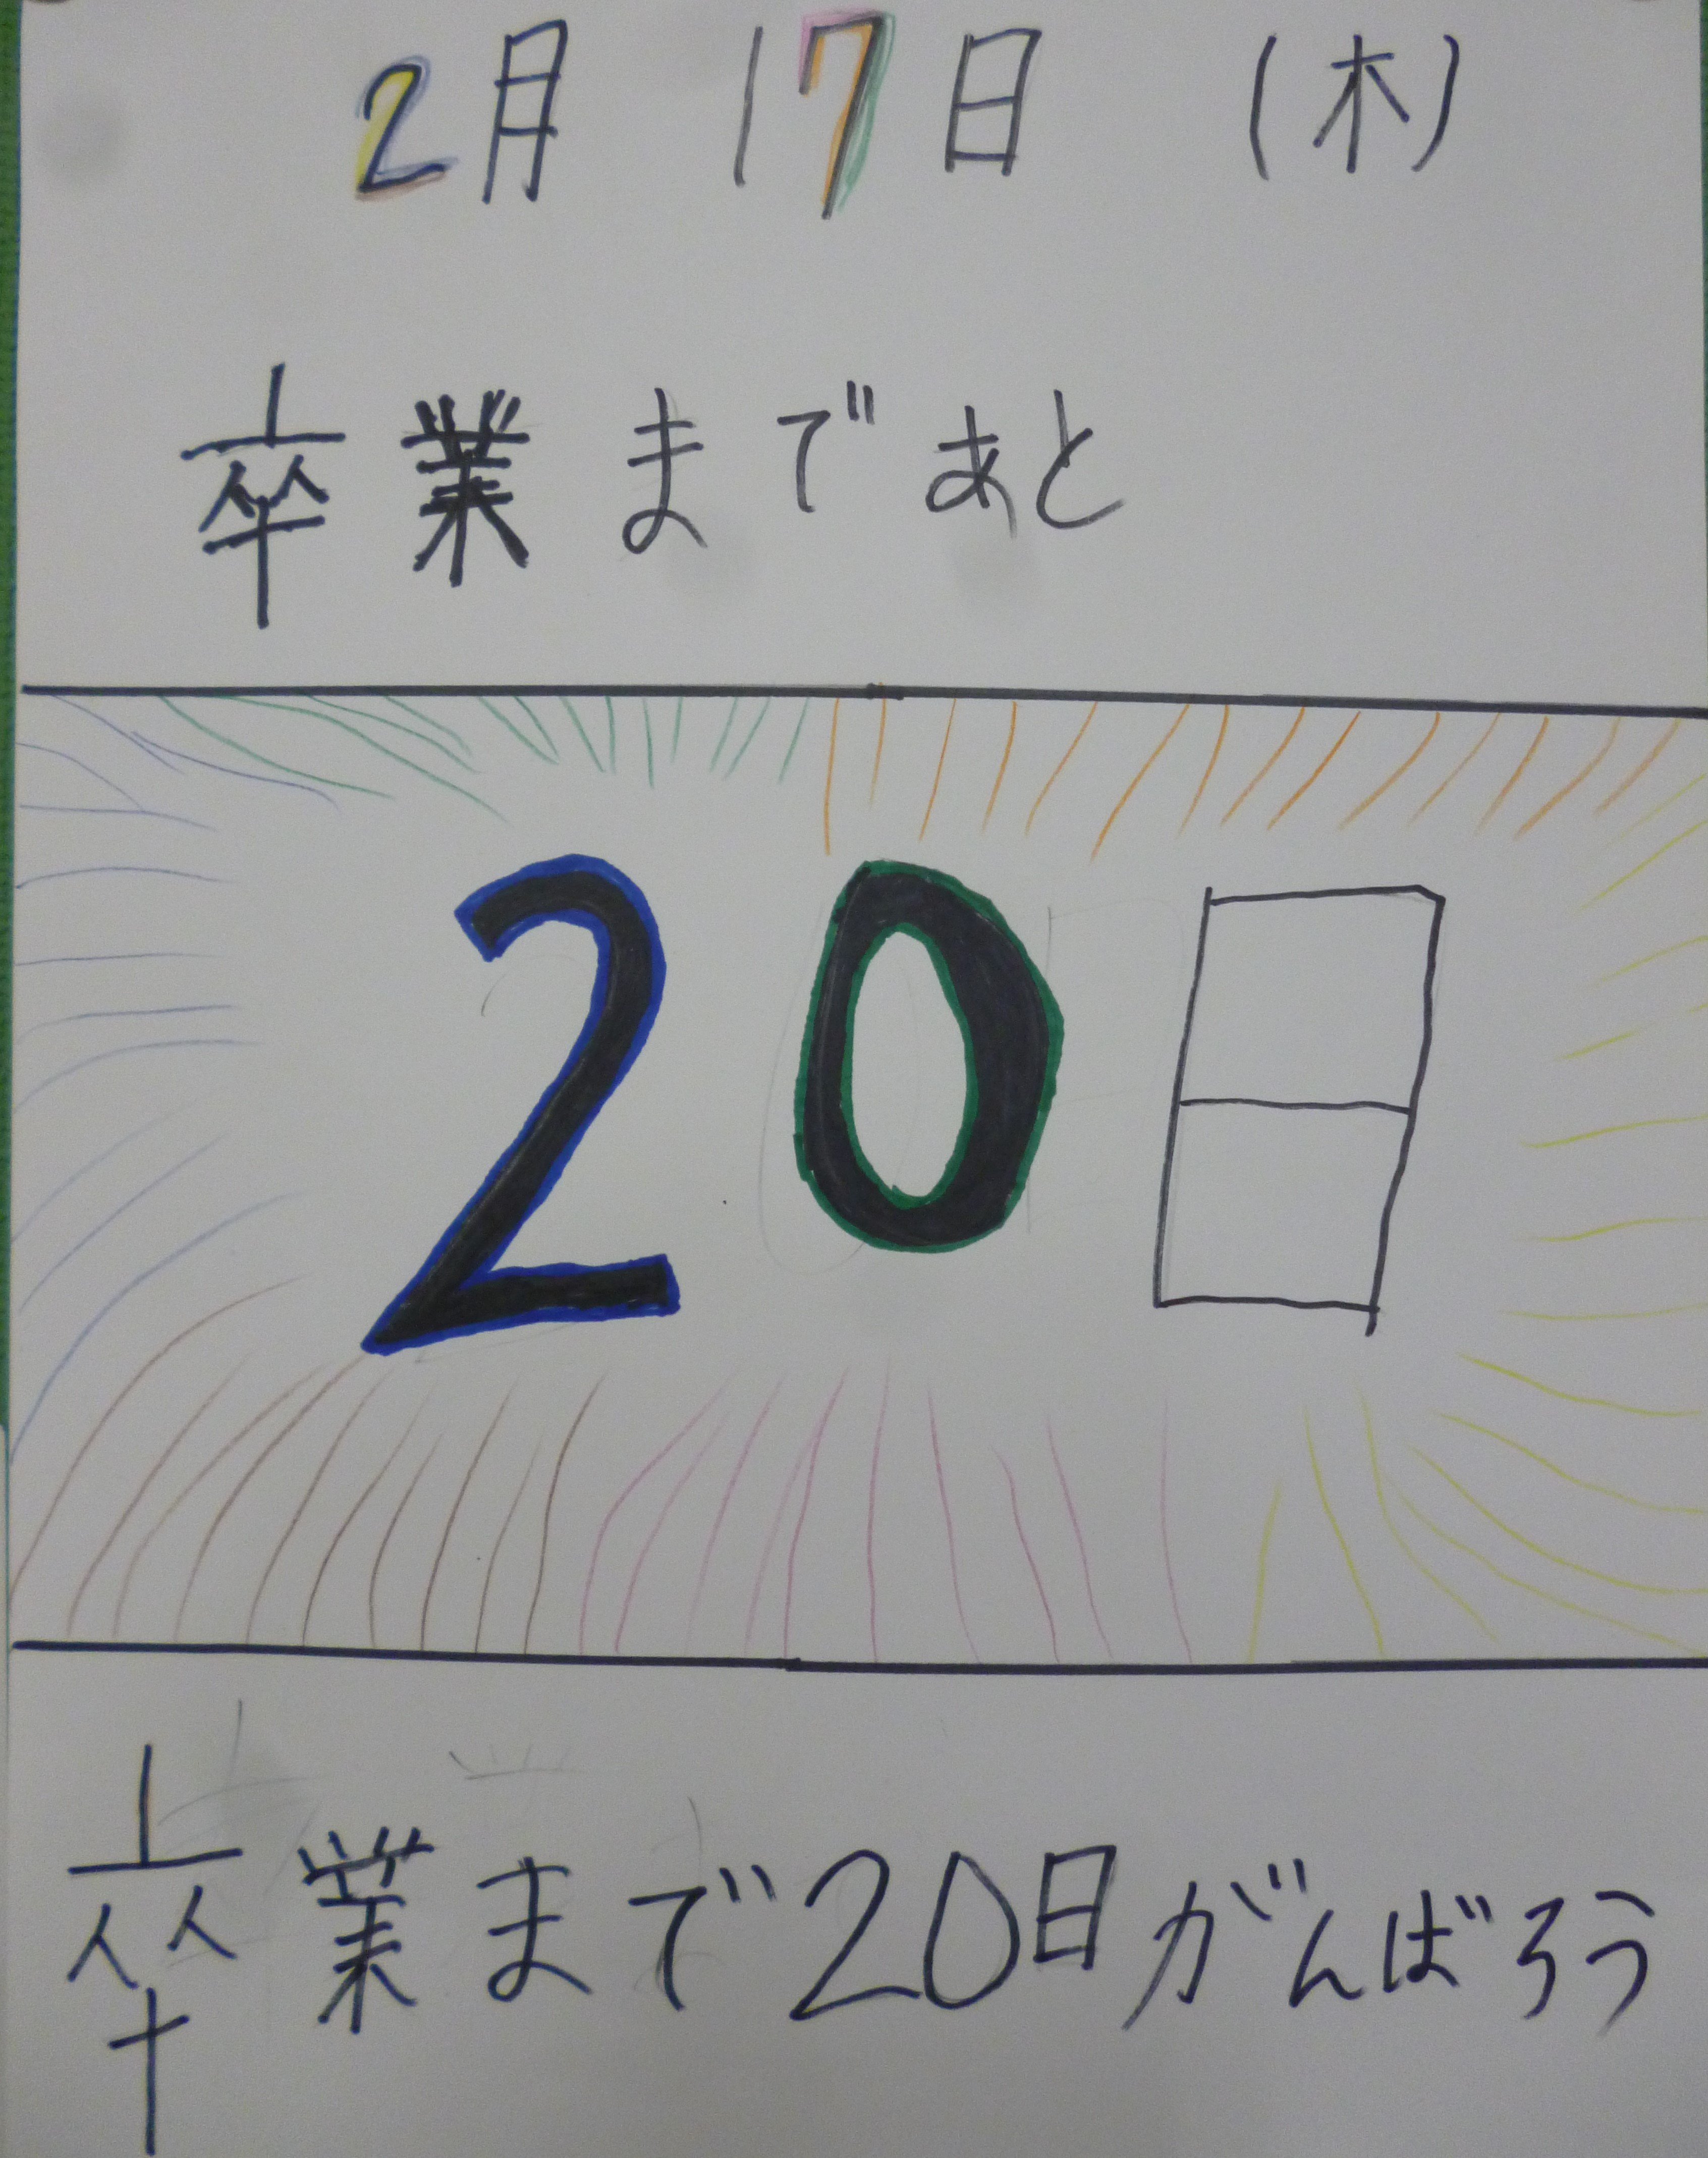 2月 17日 (木)
卒業まであと
20日
卒業まで20日がんばろう